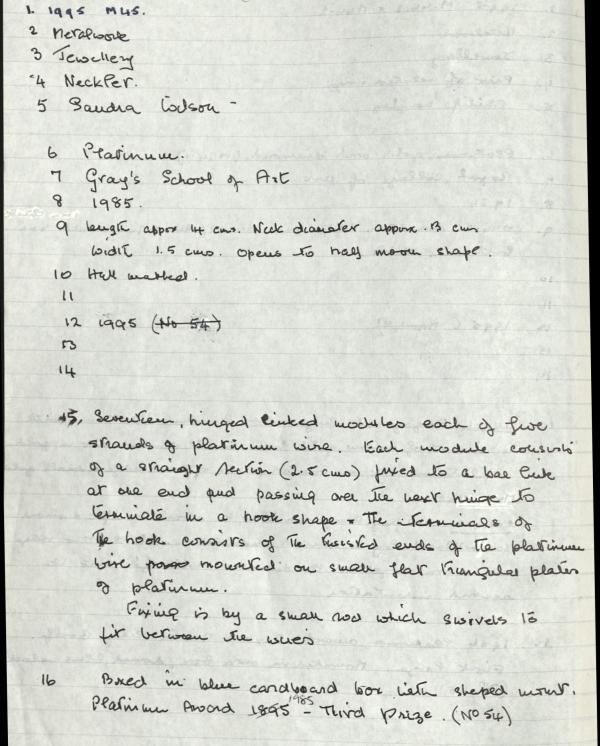 1. 1995 M45.
2 Metalwork
3 Jewellery
4 Neckpiece.
5 Sandra
6 Platinum.
7 Gray's School of Art
8 1985.
9 Length appox 14 cms. Neck diameter approx. 13 cms
Width 1.5 cms. Opens to half moon shape.
10 Hall marked.
11
12 1995 (No 54)
13
14
15, Seventeen, hinged linked modules each of five
strands of platinum wire. Each module consists
of a straight section (2.5 cms) fixed to a bar link
at one end and passing over the next hinge to
terminate in a hook shape. The terminals of
the hook consists of the twisted ends of the platinum
wire mounted on small flat triangular plates
of platinum.
Fixing is by a small rod which swivels to
fit between the wires
16 Boxed in blue cardboard box with shaped mount.
Platinum Award 1895 1985 - Third Prize. (No 54)